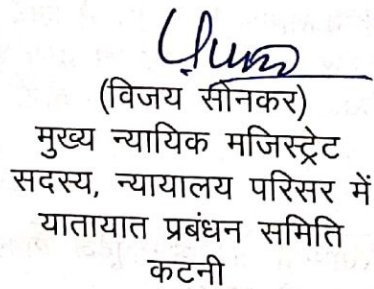 (विजय सोनकर)
मुख्य न्यायिक मजिस्ट्रेट
सदस्य, न्यायालय परिसर में
यातायात प्रबंधन समिति
कटनी